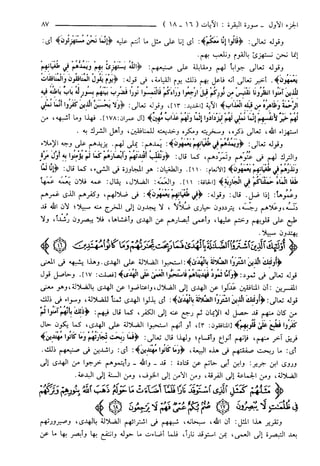 الجزء الأول ـ سورة البقرة : الآيات ( ١٦ ـ ١٨ ) ٨٧
وقوله تعالى: ﴿قَالُوٓا إِنَّا مَعَكُمْ﴾: أي إنا على مثل ما أنتم عليه ﴿إِنَّمَا نَحْنُ مُسْتَهْزِئُونَ﴾ أي:
إنما نحن نستهزئ بالقوم ونلعب بهم.
وقوله تعالى جواباً لهم ومقابلة على صنيعهم: ﴿اللَّهُ يَسْتَهْزِئُ بِهِمْ وَيَمُدُّهُمْ فِي طُغْيَانِهِمْ
يَعْمَهُونَ﴾. أخبر تعالى أنه فاعل بهم ذلك يوم القيامة، في قوله: ﴿يَوْمَ يَقُولُ الْمُنَافِقُونَ وَالْمُنَافِقَاتُ
لِلَّذِينَ آمَنُوا انْظُرُونَا نَقْتَبِسْ مِنْ نُورِكُمْ قِيلَ ارْجِعُوا وَرَاءَكُمْ فَالْتَمِسُوا نُورًا فَضُرِبَ بَيْنَهُمْ بِسُورٍ لَهُ بَابٌ بَاطِنُهُ فِيهِ
الرَّحْمَةُ وَظَاهِرُهُ مِنْ قِبَلِهِ الْعَذَابُ﴾ الآية [الحديد: ١٣]، وقوله تعالى: ﴿وَلَا يَحْسَبَنَّ الَّذِينَ كَفَرُوا أَنَّمَا نُمْلِي
لَهُمْ خَيْرٌ لِأَنْفُسِهِمْ إِنَّمَا نُمْلِي لَهُمْ لِيَزْدَادُوا إِثْمًا وَلَهُمْ عَذَابٌ مُهِينٌ﴾ [آل عمران: ١٧٨]. فهذا وما أشبهه، من
استهزاء الله، تعالى ذكره، وسخريته ومكره وخديعته للمنافقين، وأهل الشرك به .
وقوله تعالى: ﴿وَيَمُدُّهُمْ فِي طُغْيَانِهِمْ يَعْمَهُونَ﴾: يَمدهم: يملي لهم. يزيدهم على وجه الإملاء
والترك لهم في عُتوهم وتمردهم، كما قال: ﴿وَنُقَلِّبُ أَفْئِدَتَهُمْ وَأَبْصَارَهُمْ كَمَا لَمْ يُؤْمِنُوا بِهِ أَوَّلَ مَرَّةٍ
وَنَذَرُهُمْ فِي طُغْيَانِهِمْ يَعْمَهُونَ﴾ [الأنعام: ١١٠]. والطغيان: هو المجاوزة في الشيء، كما قال: ﴿إِنَّا لَمَّا
طَغَا الْمَاءُ حَمَلْنَاكُمْ فِي الْجَارِيَةِ﴾ [الحاقة: ١١]. والعَمَهُ: الضلال، يقال: عمه فلان يَعْمَهُ عَمَهاً
وعُموهاً: إذا ضل. قال: وقوله: ﴿فِي طُغْيَانِهِمْ يَعْمَهُونَ﴾: في ضلالهم، وكفرهم الذي غمرهم
دَنَسُه، وعَلاهم رِجْسُه، يترددون حيارى ضُلالاً، لا يجدون إلى المخرج منه سبيلاً؛ لأن الله قد
طبع على قلوبهم وختم عليها، وأعمى أبصارهم عن الهدى وأغشاها، فلا يبصرون رُشْداً، ولا
يهتدون سبيلا.
﴿أُولَٰئِكَ الَّذِينَ اشْتَرَوُا الضَّلَالَةَ بِالْهُدَىٰ﴾: استحبوا الضلالة على الهدى. وهذا يشبهه في المعنى
قوله تعالى في ثمود: ﴿وَأَمَّا ثَمُودُ فَهَدَيْنَاهُمْ فَاسْتَحَبُّوا الْعَمَىٰ عَلَى الْهُدَىٰ﴾ [فصلت: ١٧]. وحاصل قول
المفسرين: أن المنافقين عَدَلوا عن الهدى إلى الضلال، واعتاضوا عن الهدى بالضلالة، وهو معنى
قوله تعالى: ﴿أُولَٰئِكَ الَّذِينَ اشْتَرَوُا الضَّلَالَةَ بِالْهُدَىٰ﴾: أي بذلوا الهدى ثمناً للضلالة، وسواء في ذلك
من كان منهم قد حصل له الإيمان ثم رجع عنه إلى الكفر، كما قال فيهم: ﴿ذَٰلِكَ بِأَنَّهُمْ آمَنُوا ثُمَّ
كَفَرُوا فَطُبِعَ عَلَىٰ قُلُوبِهِمْ﴾ [المنافقون: ٣]، أو أنهم استحبوا الضلالة على الهدى، كما يكون حال
فريق آخر منهم، فإنهم أنواع وأقسام؛ ولهذا قال تعالى: ﴿فَمَا رَبِحَتْ تِجَارَتُهُمْ وَمَا كَانُوا مُهْتَدِينَ﴾
أي: ما ربحت صفقتهم في هذه البيعة، ﴿وَمَا كَانُوا مُهْتَدِينَ﴾: أي: راشدين في صنيعهم ذلك.
وروى ابن جرير: وابن أبي حاتم عن قتادة : قد ـ والله ـ رأيتموهم خرجوا من الهدى إلى
الضلالة، ومن الجماعة إلى الفرقة، ومن الأمن إلى الخوف، ومن السنة إلى البدعة.
﴿مَثَلُهُمْ كَمَثَلِ الَّذِي اسْتَوْقَدَ نَارًا فَلَمَّا أَضَاءَتْ مَا حَوْلَهُ ذَهَبَ اللَّهُ بِنُورِهِمْ وَتَرَكَهُمْ
فِي ظُلُمَاتٍ لَا يُبْصِرُونَ ﴿١٧﴾ صُمٌّ بُكْمٌ عُمْيٌ فَهُمْ لَا يَرْجِعُونَ ﴿١٨﴾﴾
وتقرير هذا المثل: أن الله، سبحانه، شبههم في اشترائهم الضلالة بالهدى، وصيرورتهم
بعد التبصرة إلى العمى، بمن استوقد ناراً، فلما أضاءت ما حوله وانتفع بها وأبصر بها ما عن